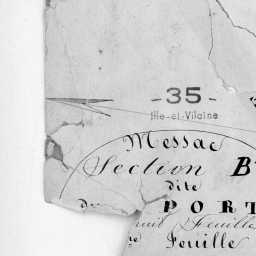 - 35 -
Ille-et-Vilaine
Messac
Section B
dite
PORT
Feuille